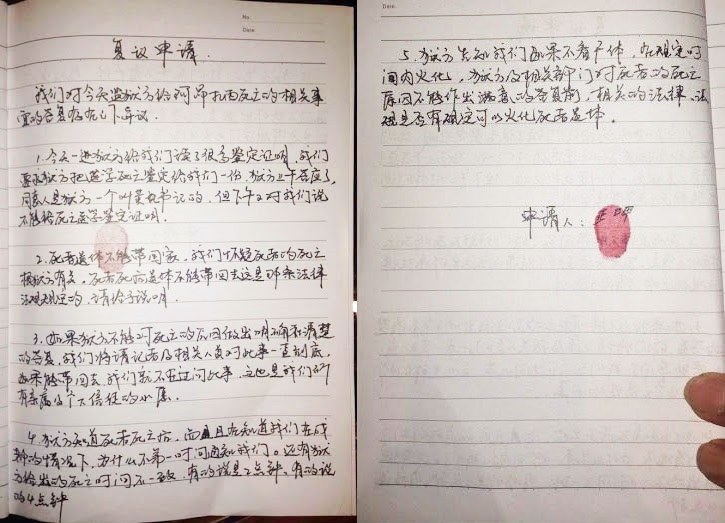 No.
Date
复议申请.
我们对今天监狱方给阿昂扎西死亡的相关事
宜的答复存在以下异议.
1. 今天一进狱方给我们读了很多鉴定证明, 我们
要求狱方把医学死亡鉴定给我们一份, 狱方上午答应了,
同意人是狱方一个叫 书记的, 但下午又对我们说
不能给死亡医学鉴定证明.
2. 死者遗体不能带回家, 我们怀疑死者的死亡
狱方有关, 死者死后遗体不能带回去这是那条法律
法规规定的, 请给予说明.
3. 如果狱方不能对死亡的原因做出明确和清楚
的答复, 我们将请记者及相关人员对此事一查到底,
如果能带回去, 我们就不再过问此事, 这也是我们所
有亲属 个 信徒的心愿.
4. 狱方知道死者死亡后, 而且在知道我们在成
都的情况下, 为什么不第一时间通知我们。还有狱
方给出的死亡时间不一致, 有的说是2点钟、有的说
的4点钟
Date.
5. 狱方告知我们如果不看尸体, 在规定时
间内火化, 狱方及相关部门对死者的死亡
原因不能作出满意的答复前, 相关的法律、法
规是否有规定可以火化死者遗体。
申请人: